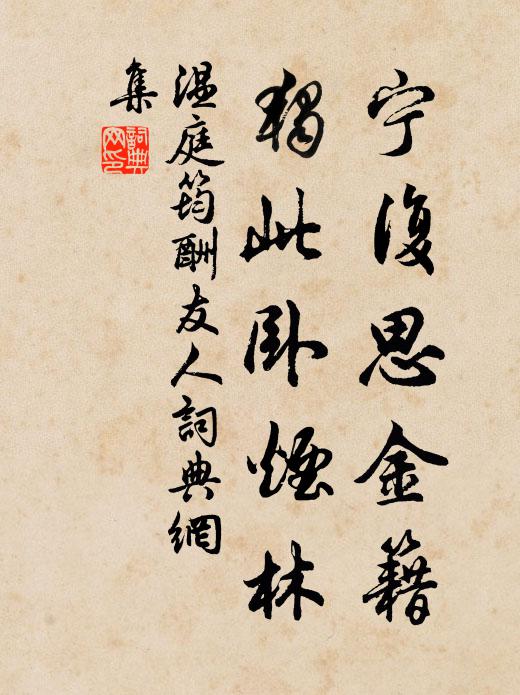 宁復思金籍
獨此卧煙林
温庭筠酬友人詞典網
集
詞典
网印